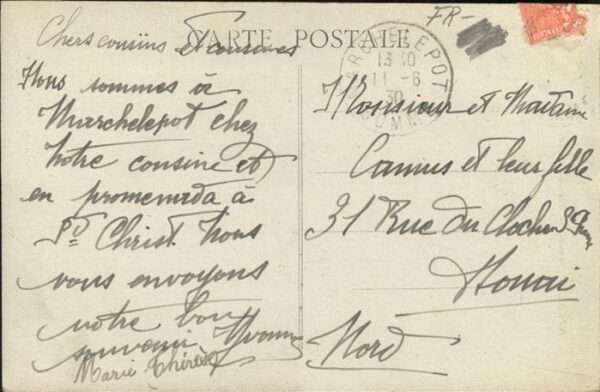 CARTE POSTALE
FR-
Chers cousins et cousines
Nous sommes à
Marchelepot chez
notre cousine et
en promenada à
St Christ. Nous
vous envoyons
notre bon
souvenir Yvonne
Marie Thérèse
13 30
11-6
30
Monsieur et Madame
Camus et leur fille
31 Rue du Clocher St Pierre
Douai
Nord